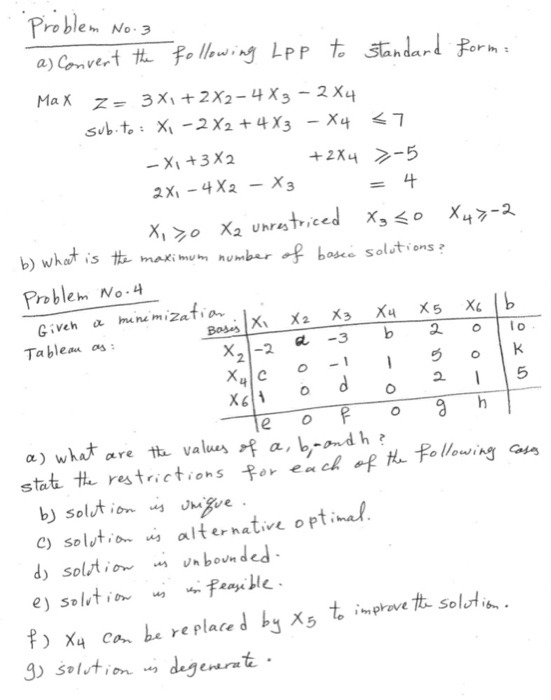 Problem No. 3
a) Convert the following LPP to standard form:
Max Z = 3X₁ + 2X₂ - 4X₃ - 2X₄
sub. to: X₁ - 2X₂ + 4X₃ - X₄ ≤ 7
-X₁ + 3X₂ + 2X₄ ≥ -5
2X₁ - 4X₂ - X₃ = 4
X₁ ≥ 0 X₂ unrestriced X₃ ≤ 0 X₄ ≥ -2
b) what is the maximum number of basic solutions?
Problem No. 4
Given a minimization
Tableau as:
Basis X₁ X₂ X₃ X₄ X₅ X₆ b
X₂ -2 a -3 b 2 0 10
X₄ c 0 -1 1 5 0 K
X₆ 1 0 d 0 2 1 5
e 0 f 0 g h
a) what are the values of a, b, and h?
state the restrictions for each of the following cases
b) solution is unique.
c) solution is alternative optimal.
d) solution is unbounded.
e) solution is infeasible.
f) X₄ can be replaced by X₅ to improve the solution.
g) solution is degenerate.